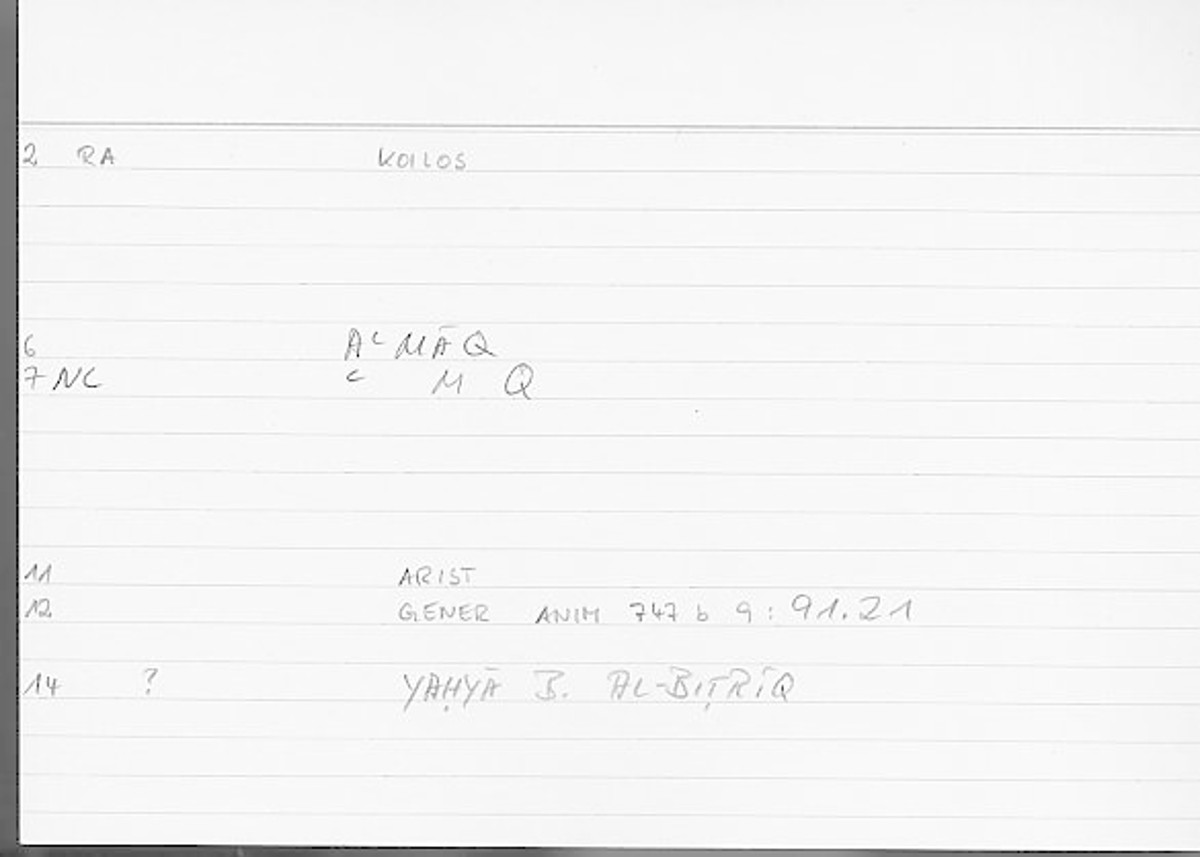 2 RA KOILOS
6 AᶜMĀQ
7 NC ᶜ M Q
11 ARIST
12 GENER ANIM 747 b 9 : 91.21
14 ? YAḤYĀ B. AL-BIṬRĪQ